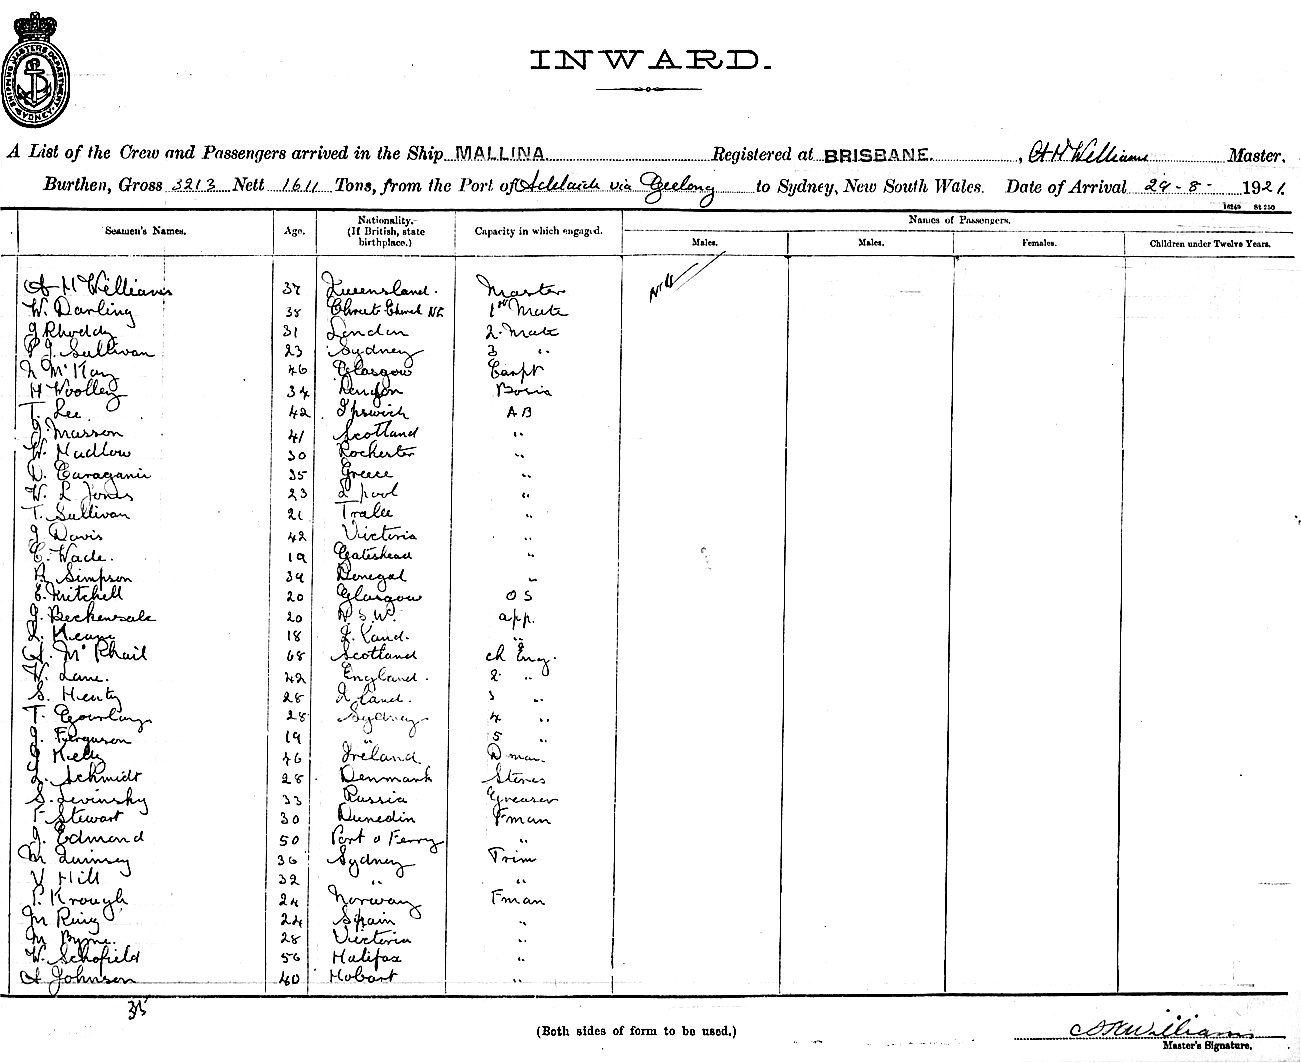 SHIPPING MASTERS DEPARTMENT SYDNEY
INWARD.
A List of the Crew and Passengers arrived in the Ship MALLINA Registered at BRISBANE. , A H Williams Master,
Burthen, Gross 3213 Nett 1611 Tons, from the Port of Adelaide via Geelong to Sydney, New South Wales. Date of Arrival 29-8- 1921
Seamen's Names. Age. Nationality. (If British, state birthplace.) Capacity in which engaged. Names of Passengers.
Males. Males. Females. Children under Twelve Years.
A H Williams 37 Queensland. Master Nil
W. Darling 38 Christ Church NZ 1st Mate
J Rhoddy 31 London 2 Mate
P J. Sullivan 23 Sydney 3 "
N McKay 46 Glasgow Carpt
H Woolley 34 London Bosn
T. Lee 42 Ipswich AB
J. Masson 41 Scotland "
W. Hadlow 30 Rochester "
D. Caraganis 35 Greece "
W. L Jones 23 L'pool "
T. Sullivan 21 Tralee "
J Davis 42 Victoria "
C. Wade. 19 Gateshead "
R Simpson 39 Donegal "
E. Mitchell 20 Glasgow OS
J. Beckensale 20 N.S.W. app.
L. Keane 18 Q.land. "
A. McPhail 68 Scotland ch Eng.
W. Lane. 42 England. 2 "
S. Henty 28 Q land. 3 "
T. Gourlay 28 Sydney 4 "
J. Ferguson 19 " 5 "
J Kelly 46 Ireland Dman
L. Schmidt 28 Denmark Stores
S. Levinsky 33 Russia Greaser
F Stewart 30 Dunedin Fman
J. Edmond 50 Port o Ferry "
M Quinsey 36 Sydney Trim
V Hill 32 " "
P. Krough 24 Norway Fman
M Ring 24 Spain "
M Byrne. 28 Victoria "
W. Schofield 56 Halifax "
A Johnson 40 Hobart "
35
(Both sides of form to be used.) A H Williams
Master's Signature.